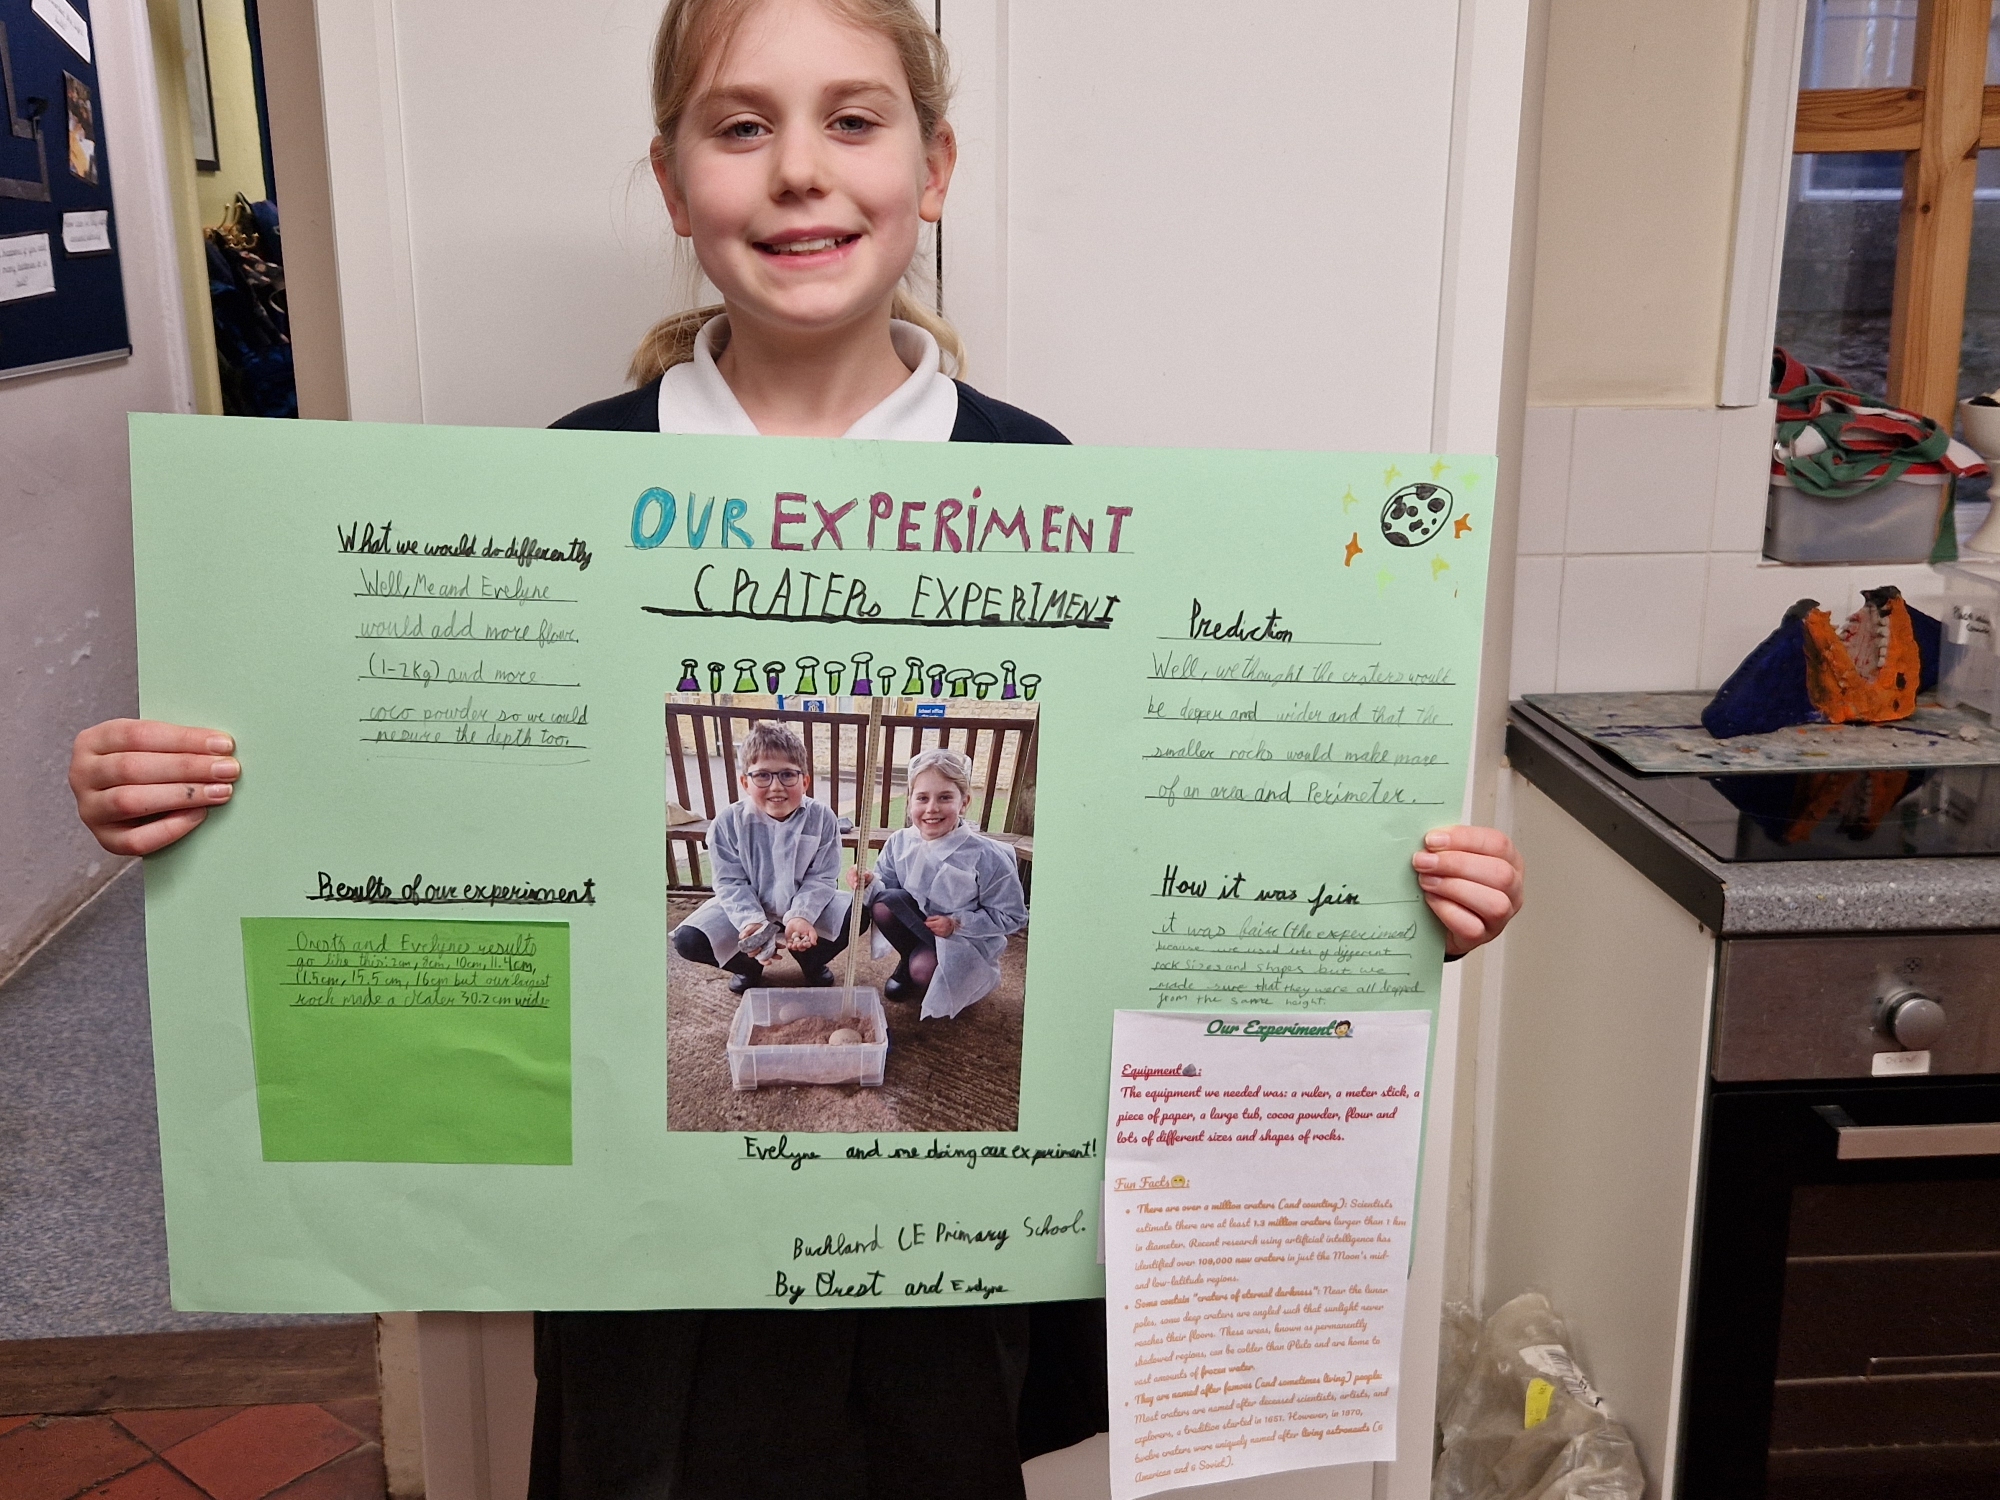 OUR EXPERIMENT
CRATERs EXPERIMENT
What we would do differently
Well, Me and Evelyne
would add more flour,
(1-2Kg) and more
coco powder so we could
mesure the depth too.
Results of our experiment
Orests and Evelynes results
go like this: 2cm, 8cm, 10cm, 11.4cm,
11.5cm, 15.5cm, 16cm but our largest
rock made a crater 30.2cm wide
School office
Evelyne and me doing our experiment!
Buckland CE Primary School.
By Orest and Evelyne
Prediction
Well, we thought the craters would
be deeper and wider and that the
smaller rocks would make more
of an area and Perimeter.
How it was fair
it was faire (the experiment)
because we used lots of different
rock sizes and shapes but we
made sure that they were all dropped
from the same height.
Our Experiment
Equipment:
The equipment we needed was: a ruler, a meter stick, a
piece of paper, a large tub, cocoa powder, flour and
lots of different sizes and shapes of rocks.
Fun Facts:
• There are over a million craters (and counting): Scientists
estimate there are at least 1.3 million craters larger than 1 km
in diameter. Recent research using artificial intelligence has
identified over 109,000 new craters in just the Moon's mid-
and low-latitude regions.
• Some contain "craters of eternal darkness": Near the lunar
poles, some deep craters are angled such that sunlight never
reaches their floors. These areas, known as permanently
shadowed regions, can be colder than Pluto and are home to
vast amounts of frozen water.
• They are named after famous (and sometimes living) people:
Most craters are named after deceased scientists, artists, and
explorers, a tradition started in 1651. However, in 1970,
twelve craters were uniquely named after living astronauts (6
American and 6 Soviet).